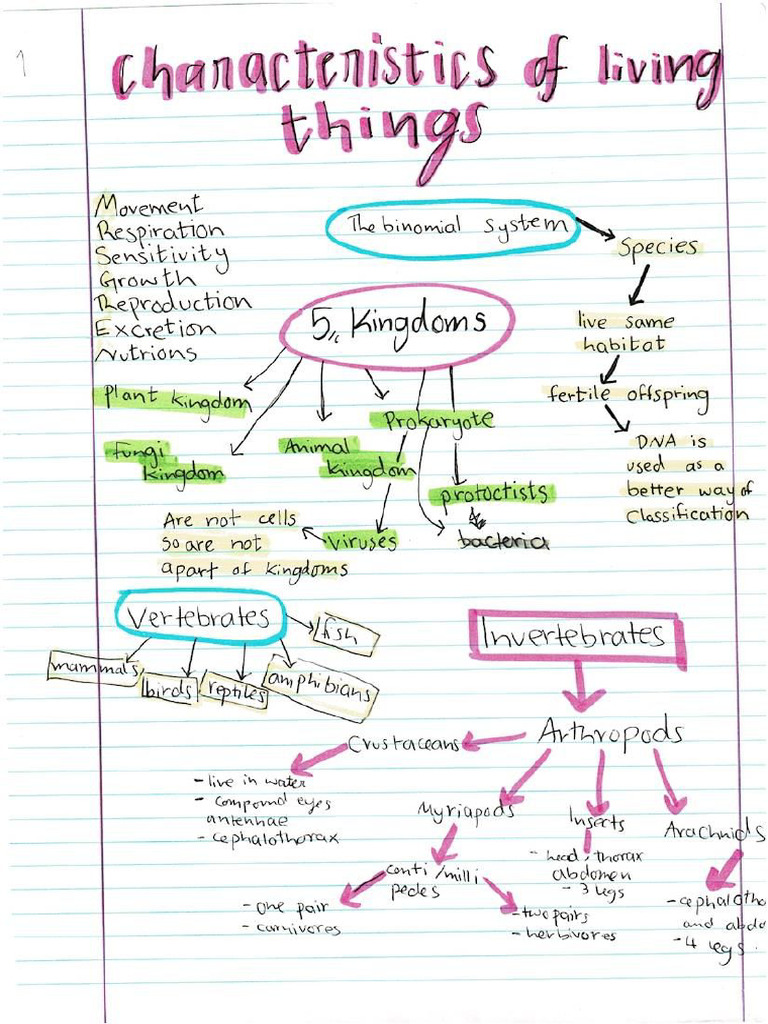 1
Characteristics of living
things
Movement
Respiration
Sensitivity
Growth
Reproduction
Excretion
Nutrions
The binomial system
Species
live same
habitat
fertile offspring
DNA is
used as a
better way of
classification
5 Kingdoms
Plant kingdom
Fungi
kingdom
Animal
kingdom
Prokaryote
protoctists
bacteria
viruses
Are not cells
so are not
apart of kingdoms
Vertebrates
fish
mammals
birds
reptiles
amphibians
Invertebrates
Arthropods
Crustaceans
- live in water
- compound eyes
antennae
- cephalothorax
Myriapods
centi/milli
pedes
- one pair
- carnivores
- two pairs
- herbivores
Insects
- head, thorax
abdomen
- 3 legs
Arachnids
- cephalotho
and abdo
- 4 legs.